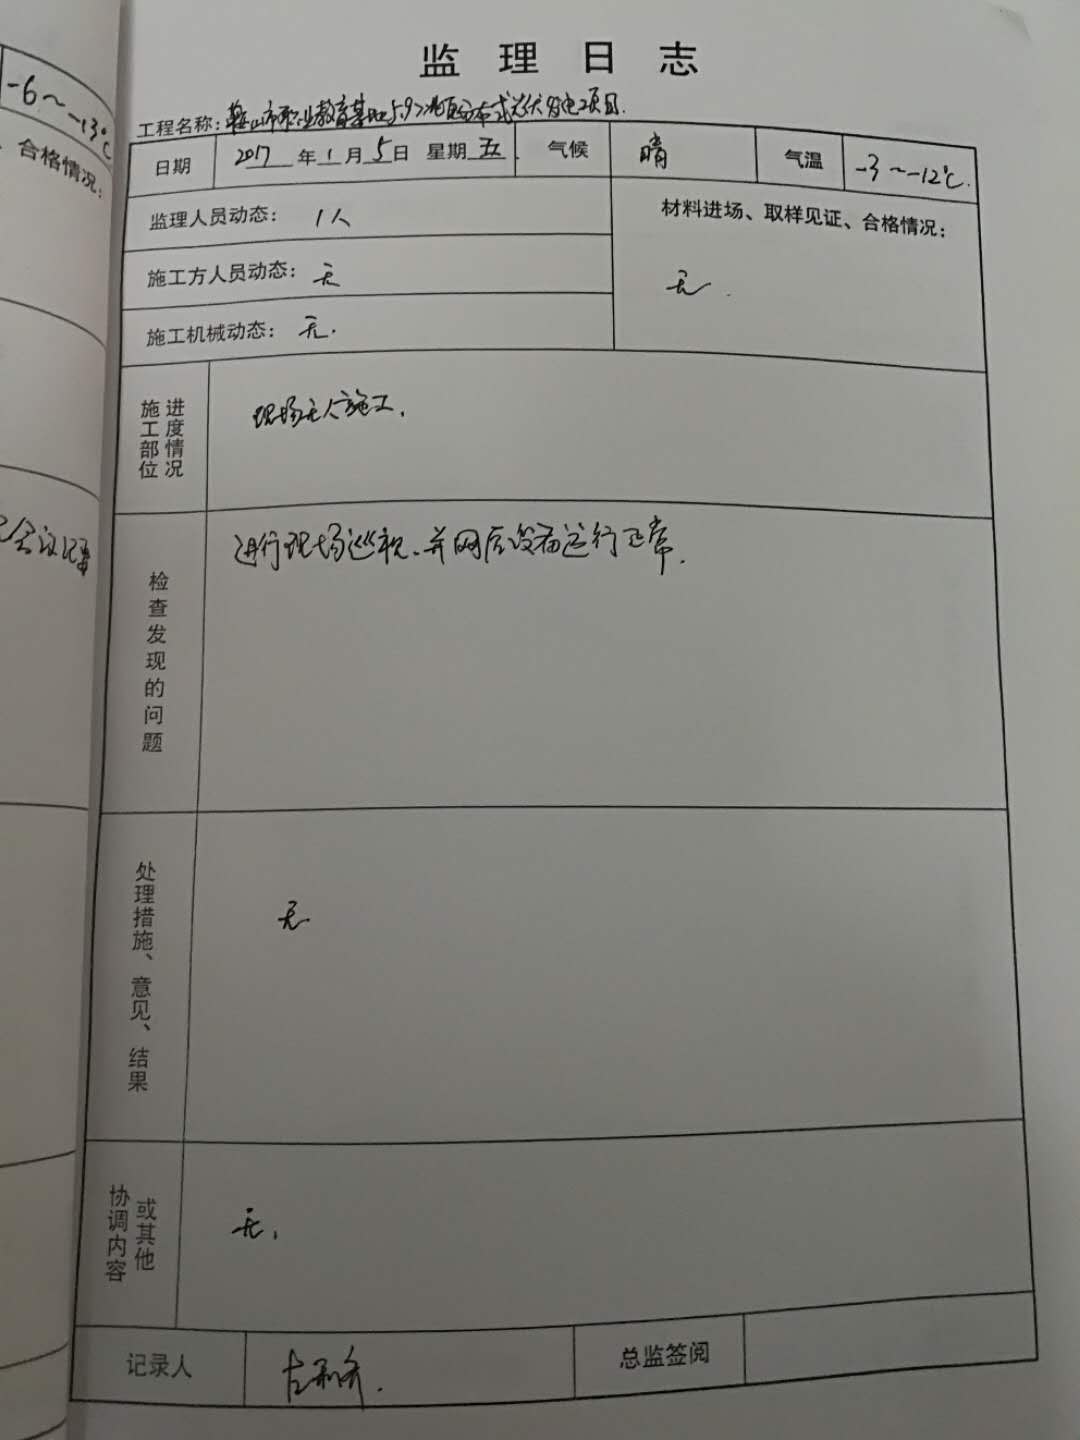 监理日志
工程名称：鞍山市职业教育基地5.92兆瓦分布式光伏发电项目.
日期 2017年1月5日 星期五. 气候 晴 气温 -3~-12℃.
监理人员动态： 1人
材料进场、取样见证、合格情况：
无.
施工方人员动态： 无
施工机械动态： 无.
施工部位进度情况
现场无人施工.
检查发现的问题
进行现场巡视.并网后设备运行正常.
处理措施、意见、结果
无
协调内容或其他
无.
记录人
总监签阅
-6~-13℃
合格情况：
会议记要